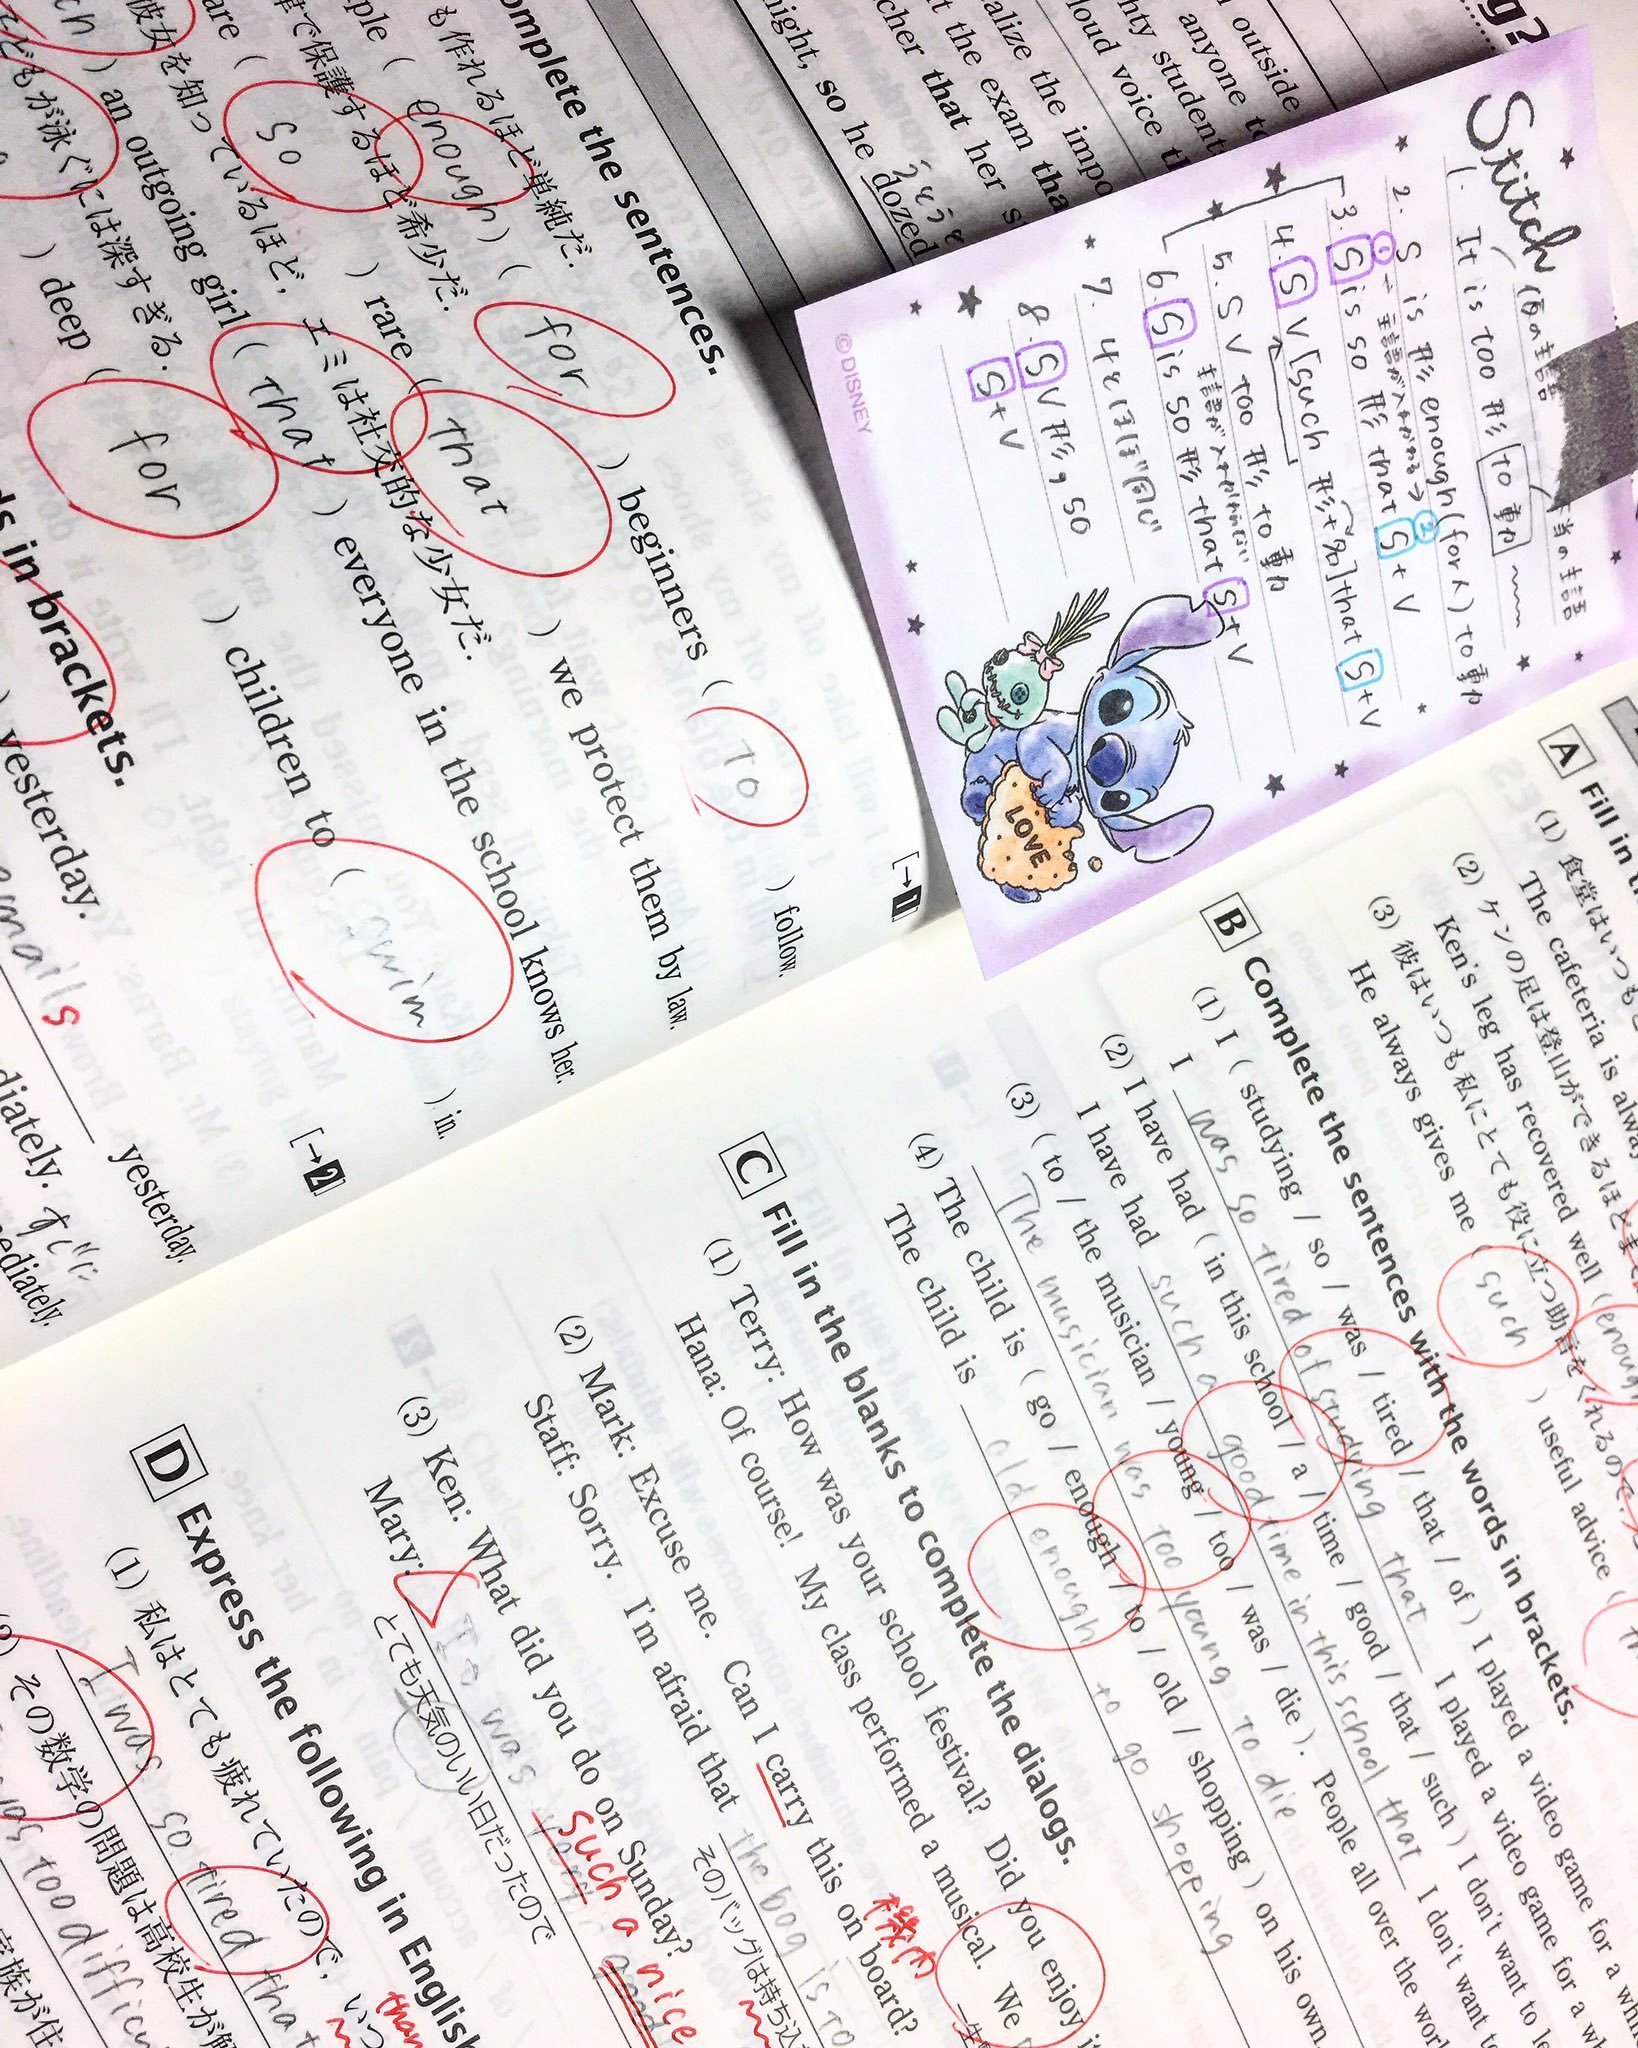 omplete the sentences.
も作れるほど単純だ.
ple ( enough ) ( for ) beginners ( To ) follow.
[→1]
で保護するほど希少だ.
are ( so ) rare ( that ) we protect them by law.
彼女を知っているほど, エミは社交的な少女だ.
ch ) an outgoing girl ( that ) everyone in the school knows her.
[→2]
どもが泳ぐには深すぎる.
) deep ( for ) children to ( swim ) in.
ds in brackets.
) yesterday.
emails yesterday.
diately. すぐに
ediately.
g?
outside
anyone to
hty student
loud voice th
alize the impo
t the exam tha
cher that her s
night, so he dozed
うとうと
Stitch
(仮の主語
本当の主語
1. It is too 形 to 動
2. S is 形 enough (for 人) to 動
① → 主語が入れかわる → ②
3. S is so 形 that S + V
4. S V [such 形+名] that S + V
5. S V too 形 to 動
主語が入れかわらない
6. S is so 形 that S + V
7. 4とほぼ同じ
8. S V 形, so
S + V
©DISNEY
LOVE
A Fill in t
(1) 食堂はいつも
The cafeteria is alway
(2) ケンの足は登山ができるほど
Ken's leg has recovered well ( enough
(3) 彼はいつも私にとても役に立つ助言をくれるので,
He always gives me ( such ) useful advice ( th
B Complete the sentences with the words in brackets.
(1) I ( studying / so / was / tired / that / of ) I played a video game for a whi
I was so tired of studying that I played a video game for a wh
(2) I have had ( in this school / a / time / good / that / such ) I don't want to le
I have had such a good time in this school that I don't want to
(3) ( to / the musician / young / too / was / die ). People all over the worl
The musician was too young to die
(4) The child is ( go / enough / to / old / shopping ) on his own.
The child is old enough to go shopping
C Fill in the blanks to complete the dialogs.
(1) Terry: How was your school festival? Did you enjoy it
Hana: Of course! My class performed a musical. We
(2) Mark: Excuse me. Can I carry this on board?
機内
Staff: Sorry. I'm afraid that the bag is to
そのバッグは持ち込
(3) Ken: What did you do on Sunday?
Mary: It was very good
such a nice
とても天気のいい日だったので
D Express the following in English
(1) 私はとても疲れていたので, いつ
than
I was so tired that
(2) その数学の問題は高校生が解
was too difficu
家族が住